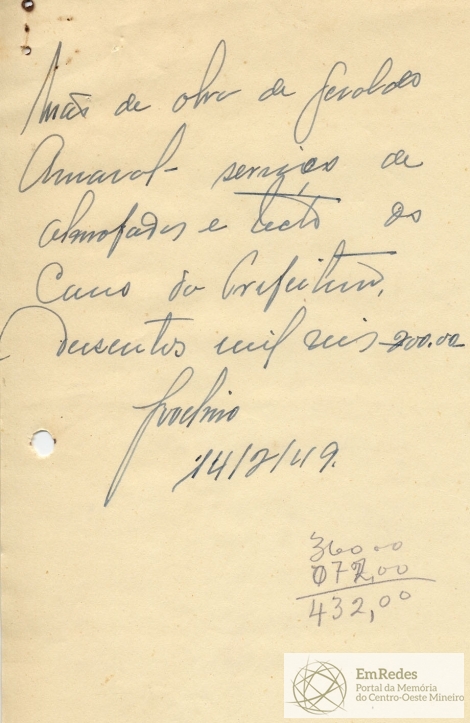 Mão de obra de Geraldo
Amaral - serviço de
almofadas e tecto do
Carro da Prefeitura.
Dusentos mil reis - 200.00
14/2/49.
360.00
072,00
432,00
EmRedes
Portal da Memória
do Centro-Oeste Mineiro